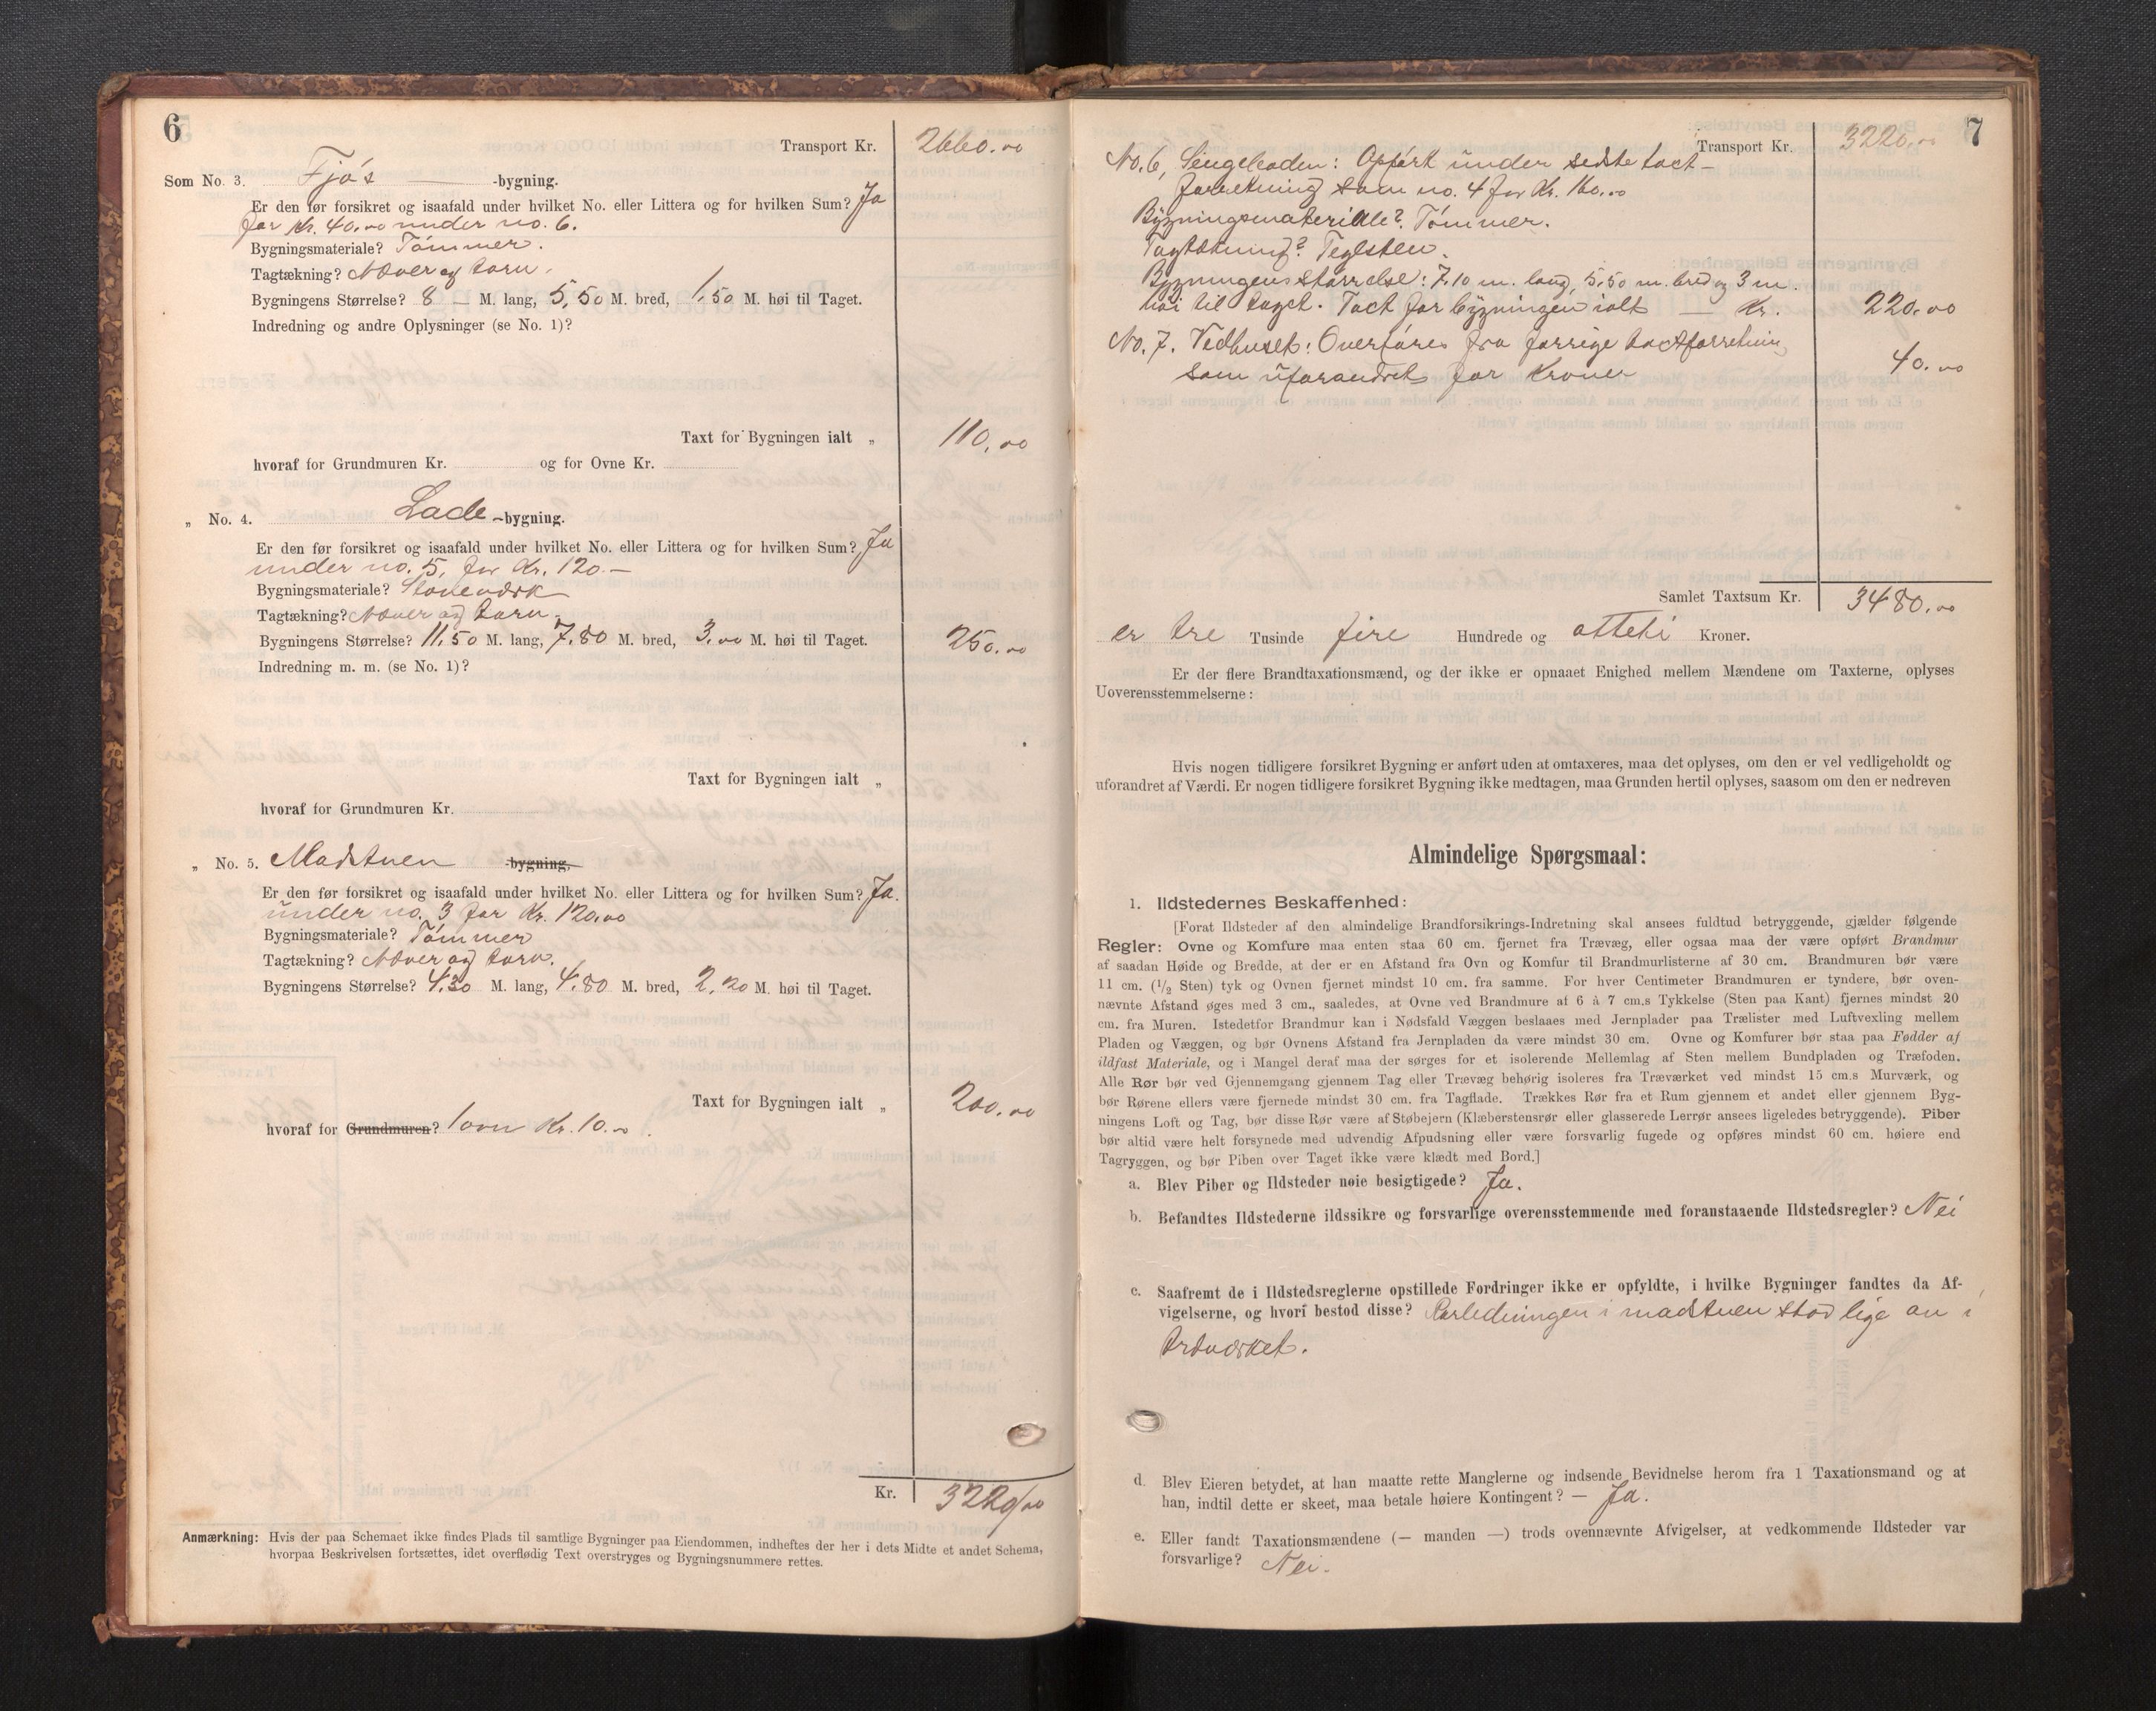 6
Transport Kr. 2660.00
Som No. 3. Fjøs -bygning.
Er den før forsikret og isaafald under hvilket No. eller Littera og for hvilken Sum? Ja
for Kr. 40.00 under no. 6.
Bygningsmateriale? Tømmer.
Tagtækning? Næver og torv.
Bygningens Størrelse? 8 — M. lang, 5,50 M. bred, 1,50 M. høi til Taget.
Indredning og andre Oplysninger (se No. 1)?
Taxt for Bygningen ialt „ 110.00
hvoraf for Grundmuren Kr. og for Ovne Kr.
„ No. 4. Lade -bygning.
Er den før forsikret og isaafald under hvilket No. eller Littera og for hvilken Sum? Ja
under no. 5, for Kr. 120.—
Bygningsmateriale? Staveværk
Tagtækning? Næver og torv.
Bygningens Størrelse? 11,50 M. lang, 7.80 M. bred, 3.00 M. høi til Taget. 250.00
Indredning m. m. (se No. 1)?
Taxt for Bygningen ialt „
hvoraf for Grundmuren Kr.
„ No. 5. Madstuen -bygning.
Er den før forsikret og isaafald under hvilket No. eller Littera og for hvilken Sum? Ja.
under no. 3 for Kr. 120.00
Bygningsmateriale? Tømmer
Tagtækning? Næver og torv.
Bygningens Størrelse? 4.30 M. lang, 4.80 M. bred, 2.20 M. høi til Taget.
Taxt for Bygningen ialt „ 200.00
hvoraf for Grundmuren? 1 ovn Kr. 10.00.
Kr. 3220.00
Anmærkning: Hvis der paa Schemaet ikke findes Plads til samtlige Bygninger paa Eiendommen, indheftes der her i dets Midte et andet Schema,
hvorpaa Beskrivelsen fortsættes, idet overflødig Text overstryges og Bygningsnummere rettes.
7
Transport Kr. 3220.00
No. 6, Sengeboden: Opført under sidste taxt-
forretning som no. 4 for Kr. 160.00
Bygningsmateriale? Tømmer.
Tagtækning? Teglsten.
Bygningens størrelse: 7,10 m. lang, 5,50 m. bred og 3 m.
høi til taget. Taxt for bygningen ialt — Kr. 220.00
No. 7. Vedhuset: Overføres fra forrige taxtforretning
som uforandret for Kroner 40.00
Samlet Taxtsum Kr. 3480.00
er tre Tusinde fire Hundrede og otteti Kroner.
Er der flere Brandtaxationsmænd, og der ikke er opnaaet Enighed mellem Mændene om Taxterne, oplyses
Uoverensstemmelserne:
Hvis nogen tidligere forsikret Bygning er anført uden at omtaxeres, maa det oplyses, om den er vel vedligeholdt og
uforandret af Værdi. Er nogen tidligere forsikret Bygning ikke medtagen, maa Grunden hertil oplyses, saasom om den er nedreven
Almindelige Spørgsmaal:
1. Ildstedernes Beskaffenhed:
[Forat Ildsteder af den almindelige Brandforsikrings-Indretning skal ansees fuldtud betryggende, gjælder følgende
Regler: Ovne og Komfure maa enten staa 60 cm. fjernet fra Trævæg, eller ogsaa maa der være opført Brandmur
af saadan Høide og Bredde, at der er en Afstand fra Ovn og Komfur til Brandmurlisterne af 30 cm. Brandmuren bør være
11 cm. (1/2 Sten) tyk og Ovnen fjernet mindst 10 cm. fra samme. For hver Centimeter Brandmuren er tyndere, bør oven-
nævnte Afstand øges med 3 cm., saaledes, at Ovne ved Brandmure af 6 à 7 cm.s Tykkelse (Sten paa Kant) fjernes mindst 20
cm. fra Muren. Istedetfor Brandmur kan i Nødsfald Væggen beslaaes med Jernplader paa Trælister med Luftvexling mellem
Pladen og Væggen, og bør Ovnens Afstand fra Jernpladen da være mindst 30 cm. Ovne og Komfurer bør staa paa Fødder af
ildfast Materiale, og i Mangel deraf maa der sørges for et isolerende Mellemlag af Sten mellem Bundpladen og Træfoden.
Alle Rør bør ved Gjennemgang gjennem Tag eller Trævæg behørig isoleres fra Træværket ved mindst 15 cm.s Murværk, og
bør Rørene ellers være fjernede mindst 30 cm. fra Tagflade. Trækkes Rør fra et Rum gjennem et andet eller gjennem Byg-
ningens Loft og Tag, bør disse Rør være af Støbejern (Klæberstensrør eller glasserede Lerrør ansees ligeledes betryggende). Piber
bør altid være helt forsynede med udvendig Afpudsning eller være forsvarlig fugede og opføres mindst 60 cm. høiere end
Tagryggen, og bør Piben over Taget ikke være klædt med Bord.]
a. Blev Piber og Ildsteder nøie besigtigede? Ja.
b. Befandtes Ildstederne ildssikre og forsvarlige overensstemmende med foranstaaende Ildstedsregler? Nei
c. Saafremt de i Ildstedsreglerne opstillede Fordringer ikke er opfyldte, i hvilke Bygninger fandtes da Af-
vigelserne, og hvori bestod disse? Rørledningen i madstuen stod lige an i
træværket.
d. Blev Eieren betydet, at han maatte rette Manglerne og indsende Bevidnelse herom fra 1 Taxationsmand og at
han, indtil dette er skeet, maa betale høiere Kontingent? — Ja.
e. Eller fandt Taxationsmændene (— manden —) trods ovennævnte Afvigelser, at vedkommende Ildsteder var
forsvarlige? Nei.